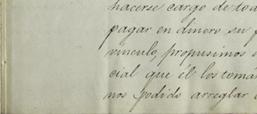 hacerse cargo de tod
pagar en dinero su
vinculo, propusimos
cial que él los tomar
nos podido arreglar